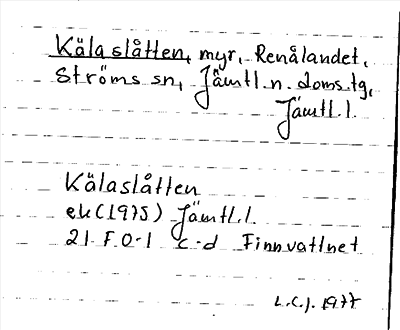 Kälaslåtten, myr, Renålandet,
Ströms sn, Jämtl. n. doms.tg,
Jämtl. l.
Kälaslåtten
ek (1975) Jämtl. l.
21 F 0-1 c-d Finnvattnet
L.C.J. 1977